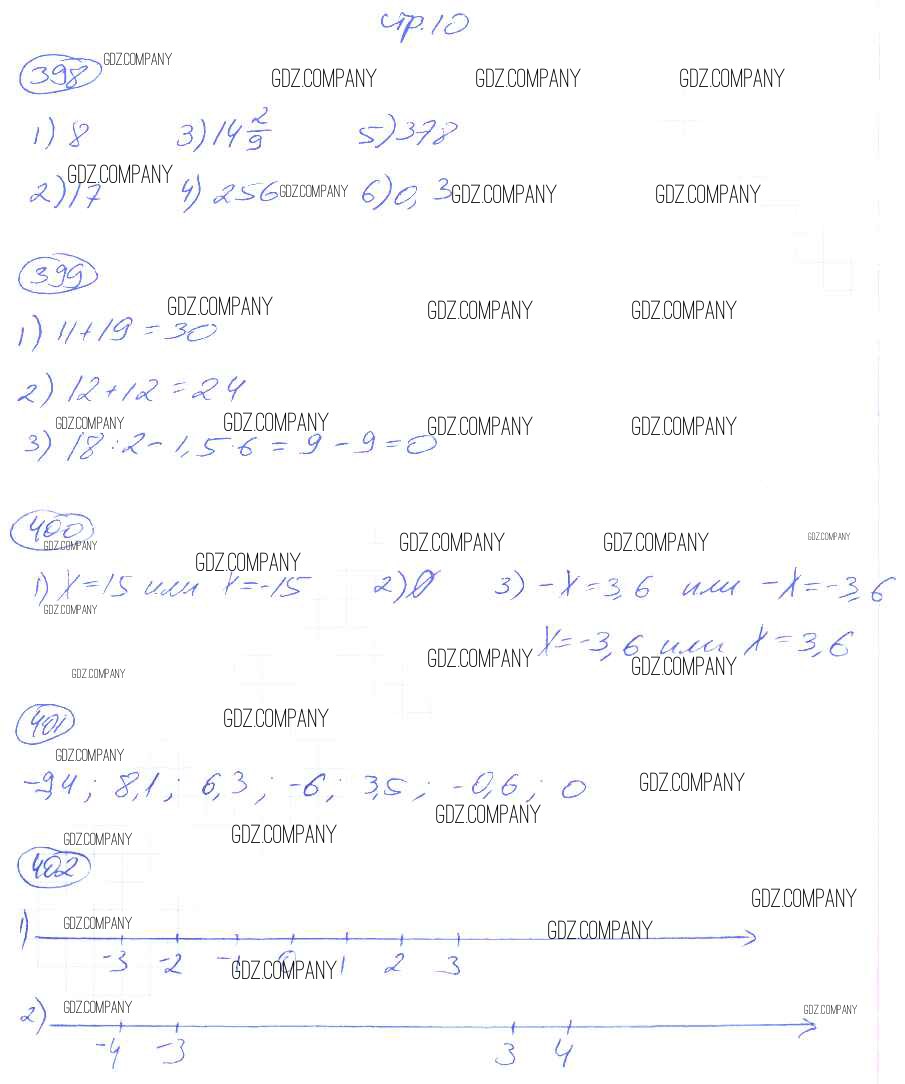 стр. 10
398 GDZ.COMPANY
GDZ.COMPANY GDZ.COMPANY GDZ.COMPANY
1) 8 3) 14 2/9 5) 378
GDZ.COMPANY
2) 17 4) 256 GDZ.COMPANY 6) 0,3 GDZ.COMPANY GDZ.COMPANY
399
GDZ.COMPANY GDZ.COMPANY GDZ.COMPANY
1) 11+19=30
2) 12+12=24
GDZ.COMPANY GDZ.COMPANY GDZ.COMPANY GDZ.COMPANY
3) 18:2-1,5·6=9-9=0
400
GDZ.COMPANY GDZ.COMPANY GDZ.COMPANY GDZ.COMPANY GDZ.COMPANY
1) X=15 или X=-15 2) Ø 3) -X=3,6 или -X=-3,6
GDZ.COMPANY
X=-3,6 или X=3,6
GDZ.COMPANY GDZ.COMPANY GDZ.COMPANY
401 GDZ.COMPANY
GDZ.COMPANY
-9,4; 8,1; 6,3; -6; 3,5; -0,6; 0 GDZ.COMPANY
GDZ.COMPANY
GDZ.COMPANY GDZ.COMPANY
402
GDZ.COMPANY
1) GDZ.COMPANY GDZ.COMPANY
-3 -2 -1 0 1 2 3
GDZ.COMPANY
2) GDZ.COMPANY GDZ.COMPANY
-4 -3 3 4